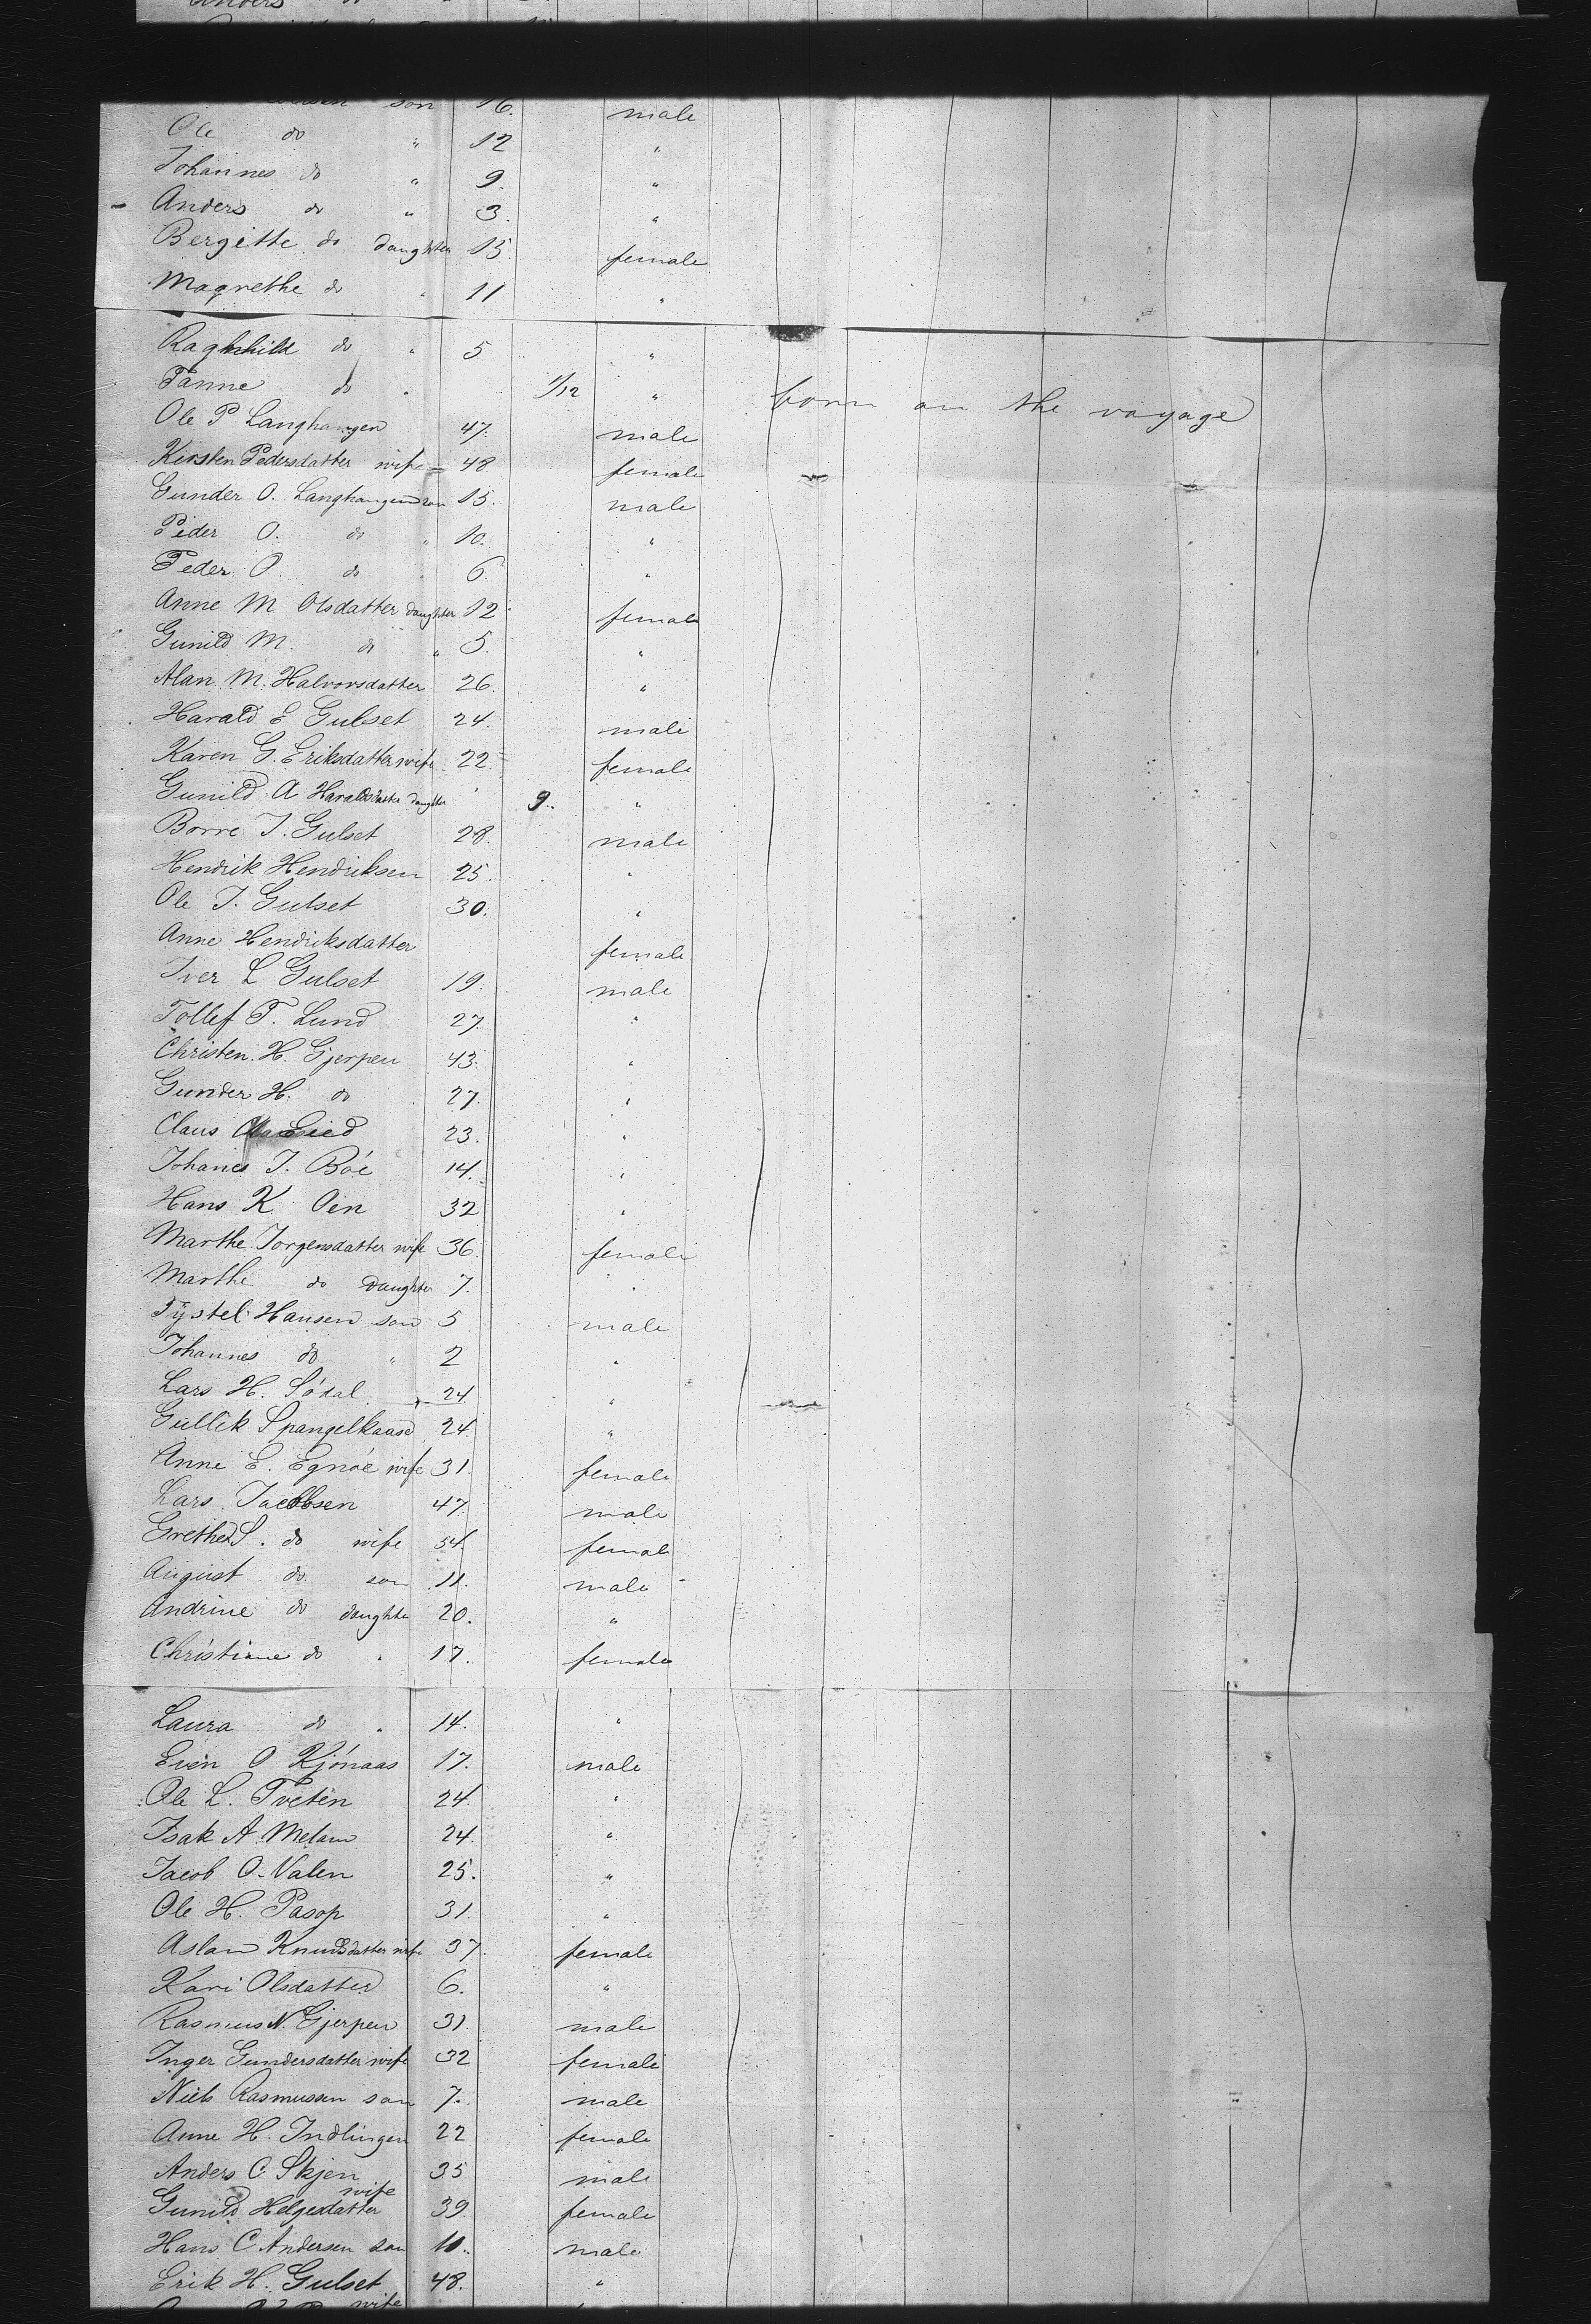 Anders do
son 16. male
Ole do " 12 "
Johannes do " 9. "
- Anders do " 3. "
Bergitte do daughter 15. female
Magrethe do " 11 "
Raghnhild do " 5 "
Tanne do " 1/12 " born on the voyage
Ole P Langhangen 47. male
Kirsten Pedersdatter wife 48 female
Gunder O. Langhangen son 15. male
Peder O. do " 10. "
Peder O do " 6. "
Anne M Olsdatter daughter 12 female
Gunild M. do " 5. "
Alan M. Halvorsdatter 26. "
Harald E Gulset 24. male
Karen G. Eriksdatter wife 22 female
Gunild A Haraldsdatter daughter 9. "
Borre J. Gulset 28. male
Hendrik Hendriksen 25. "
Ole J. Gulset 30. "
Anne Hendriksdatter female
Iver L Gulset 19. male
Tollef T. Lund 27. "
Christen. H. Gjerpen 43. "
Gunder H. do 27. "
Claus 23. "
Johanes J. Böe 14. "
Hans K Oen 32 "
Marthe Jorgensdatter wife 36. female
Marthe do Daughter 7. "
Tÿstel Hansen son 5 male
Johannes do " 2 "
Lars H. Södal 24. "
Gullik Spangelkaase 24. "
Anne E. Egnöe wife 31. female
Lars Jacobsen 47. male
Grethe S. do wife 54. female
August do son 11. male
Andrine do daughte 20. "
Christiane do " 17. female
Laura do " 14. "
Even O Kjónaas 17. male
Ole L. Tveten 24. "
Isak A. Melum 24. "
Jacob O. Valen 25. "
Ole H. Pasop 31. "
Aslau Knudsdatter wife 37. female
Kari Olsdatter 6. "
Rasmus N. Gjerpen 31. male
Inger Gundersdatter wife 32 female
Niels Rasmussen son 7. male
Anne H. Indlingen 22 female
Anders C. Skjen 35 male
wife
Gunild Helgesdatter 39. female
Hans C Andersen son 10. male
Erik H. Gulset 48. "
wife